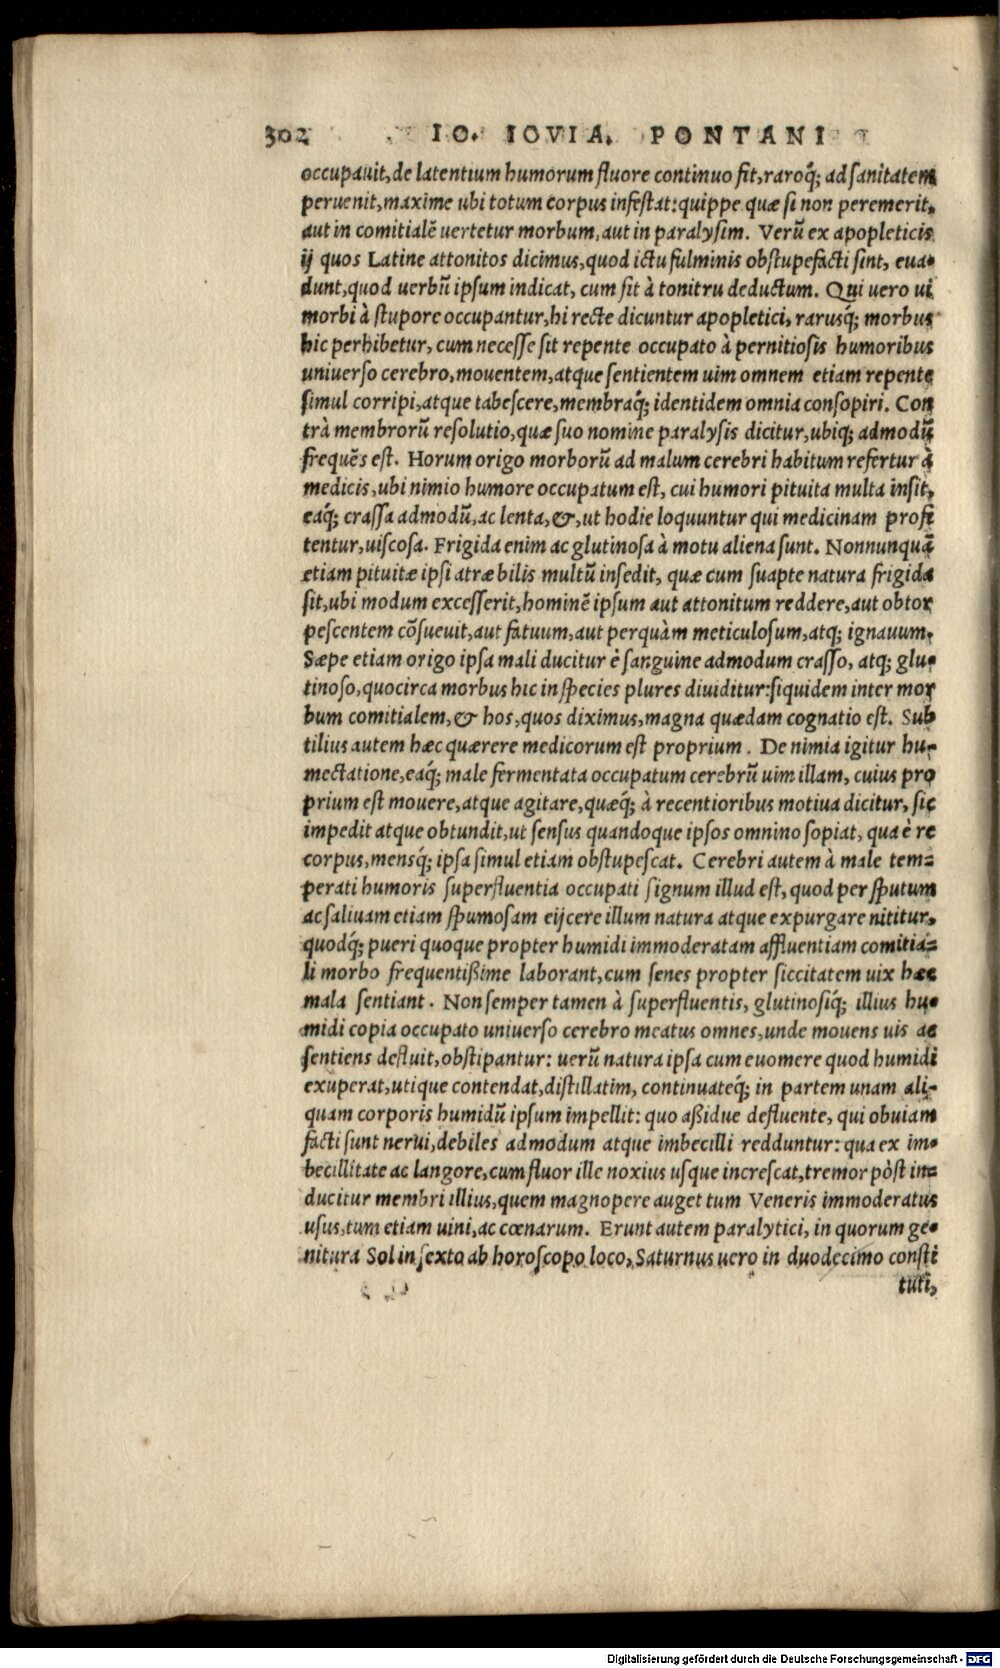 302 IO. IOVIA. PONTANI
occupauit, de latentium humorum fluore continuo fit, raroq́; ad sanitatem
peruenit, maxime ubi totum corpus infestat: quippe quæ si non peremerit,
aut in comitialē uertetur morbum, aut in paralysim. Verū ex apopleticis
ij quos Latine attonitos dicimus, quod ictu fulminis obstupefacti sint, eua-
dunt, quod uerbū ipsum indicat, cum sit à tonitru deductum. Qui uero ui
morbi à stupore occupantur, hi recte dicuntur apopletici, rarusq́; morbus
hic perhibetur, cum necesse sit repente occupato à pernitiosis humoribus
uniuerso cerebro, mouentem, atque sentientem uim omnem etiam repente
simul corripi, atque tabescere, membraq́; identidem omnia consopiri. Con
trà membrorū resolutio, quæ suo nomine paralysis dicitur, ubiq; admodū
frequēs est. Horum origo morborū ad malum cerebri habitum refertur à
medicis, ubi nimio humore occupatum est, cui humori pituita multa insit,
eaq́; crassa admodū, ac lenta, &, ut hodie loquuntur qui medicinam profi
tentur, uiscosa. Frigida enim ac glutinosa à motu aliena sunt. Nonnunquā
etiam pituitæ ipsi atræ bilis multū insedit, quæ cum suapte natura frigida
sit, ubi modum excesserit, hominē ipsum aut attonitum reddere, aut obtor
pescentem cōsueuit, aut fatuum, aut perquàm meticulosum, atq; ignauum.
Sæpe etiam origo ipsa mali ducitur è sanguine admodum crasso, atq; glu-
tinoso, quocirca morbus hic in species plures diuiditur: siquidem inter mor
bum comitialem, & hos, quos diximus, magna quædam cognatio est. Sub
tilius autem hæc quærere medicorum est proprium. De nimia igitur hu-
mectatione, eaq́; male fermentata occupatum cerebrū uim illam, cuius pro
prium est mouere, atque agitare, quæq́; à recentioribus motiua dicitur, sic
impedit atque obtundit, ut sensus quandoque ipsos omnino sopiat, qua è re
corpus, mensq́; ipsa simul etiam obstupescat. Cerebri autem à male tem-
perati humoris superfluentia occupati signum illud est, quod per sputum
ac saliuam etiam spumosam eijcere illum natura atque expurgare nititur,
quodq́; pueri quoque propter humidi immoderatam affluentiam comitia-
li morbo frequentißime laborant, cum senes propter siccitatem uix hæc
mala sentiant. Non semper tamen à superfluentis, glutinosiq́; illius hu-
midi copia occupato uniuerso cerebro meatus omnes, unde mouens uis ac
sentiens defluit, obstipantur: uerū natura ipsa cum euomere quod humidi
exuperat, utique contendat, distillatim, continuateq́; in partem unam ali-
quam corporis humidū ipsum impellit: quo aßidue defluente, qui obuiam
facti sunt nerui, debiles admodum atque imbecilli redduntur: qua ex im-
becillitate ac langore, cum fluor ille noxius usque increscat, tremor pòst in-
ducitur membri illius, quem magnopere auget tum Veneris immoderatus
usus, tum etiam uini, ac cœnarum. Erunt autem paralytici, in quorum ge-
nitura Sol in sexto ab horoscopo loco, Saturnus uero in duodecimo consti
tuti,
Digitalisierung gefördert durch die Deutsche Forschungsgemeinschaft - DFG